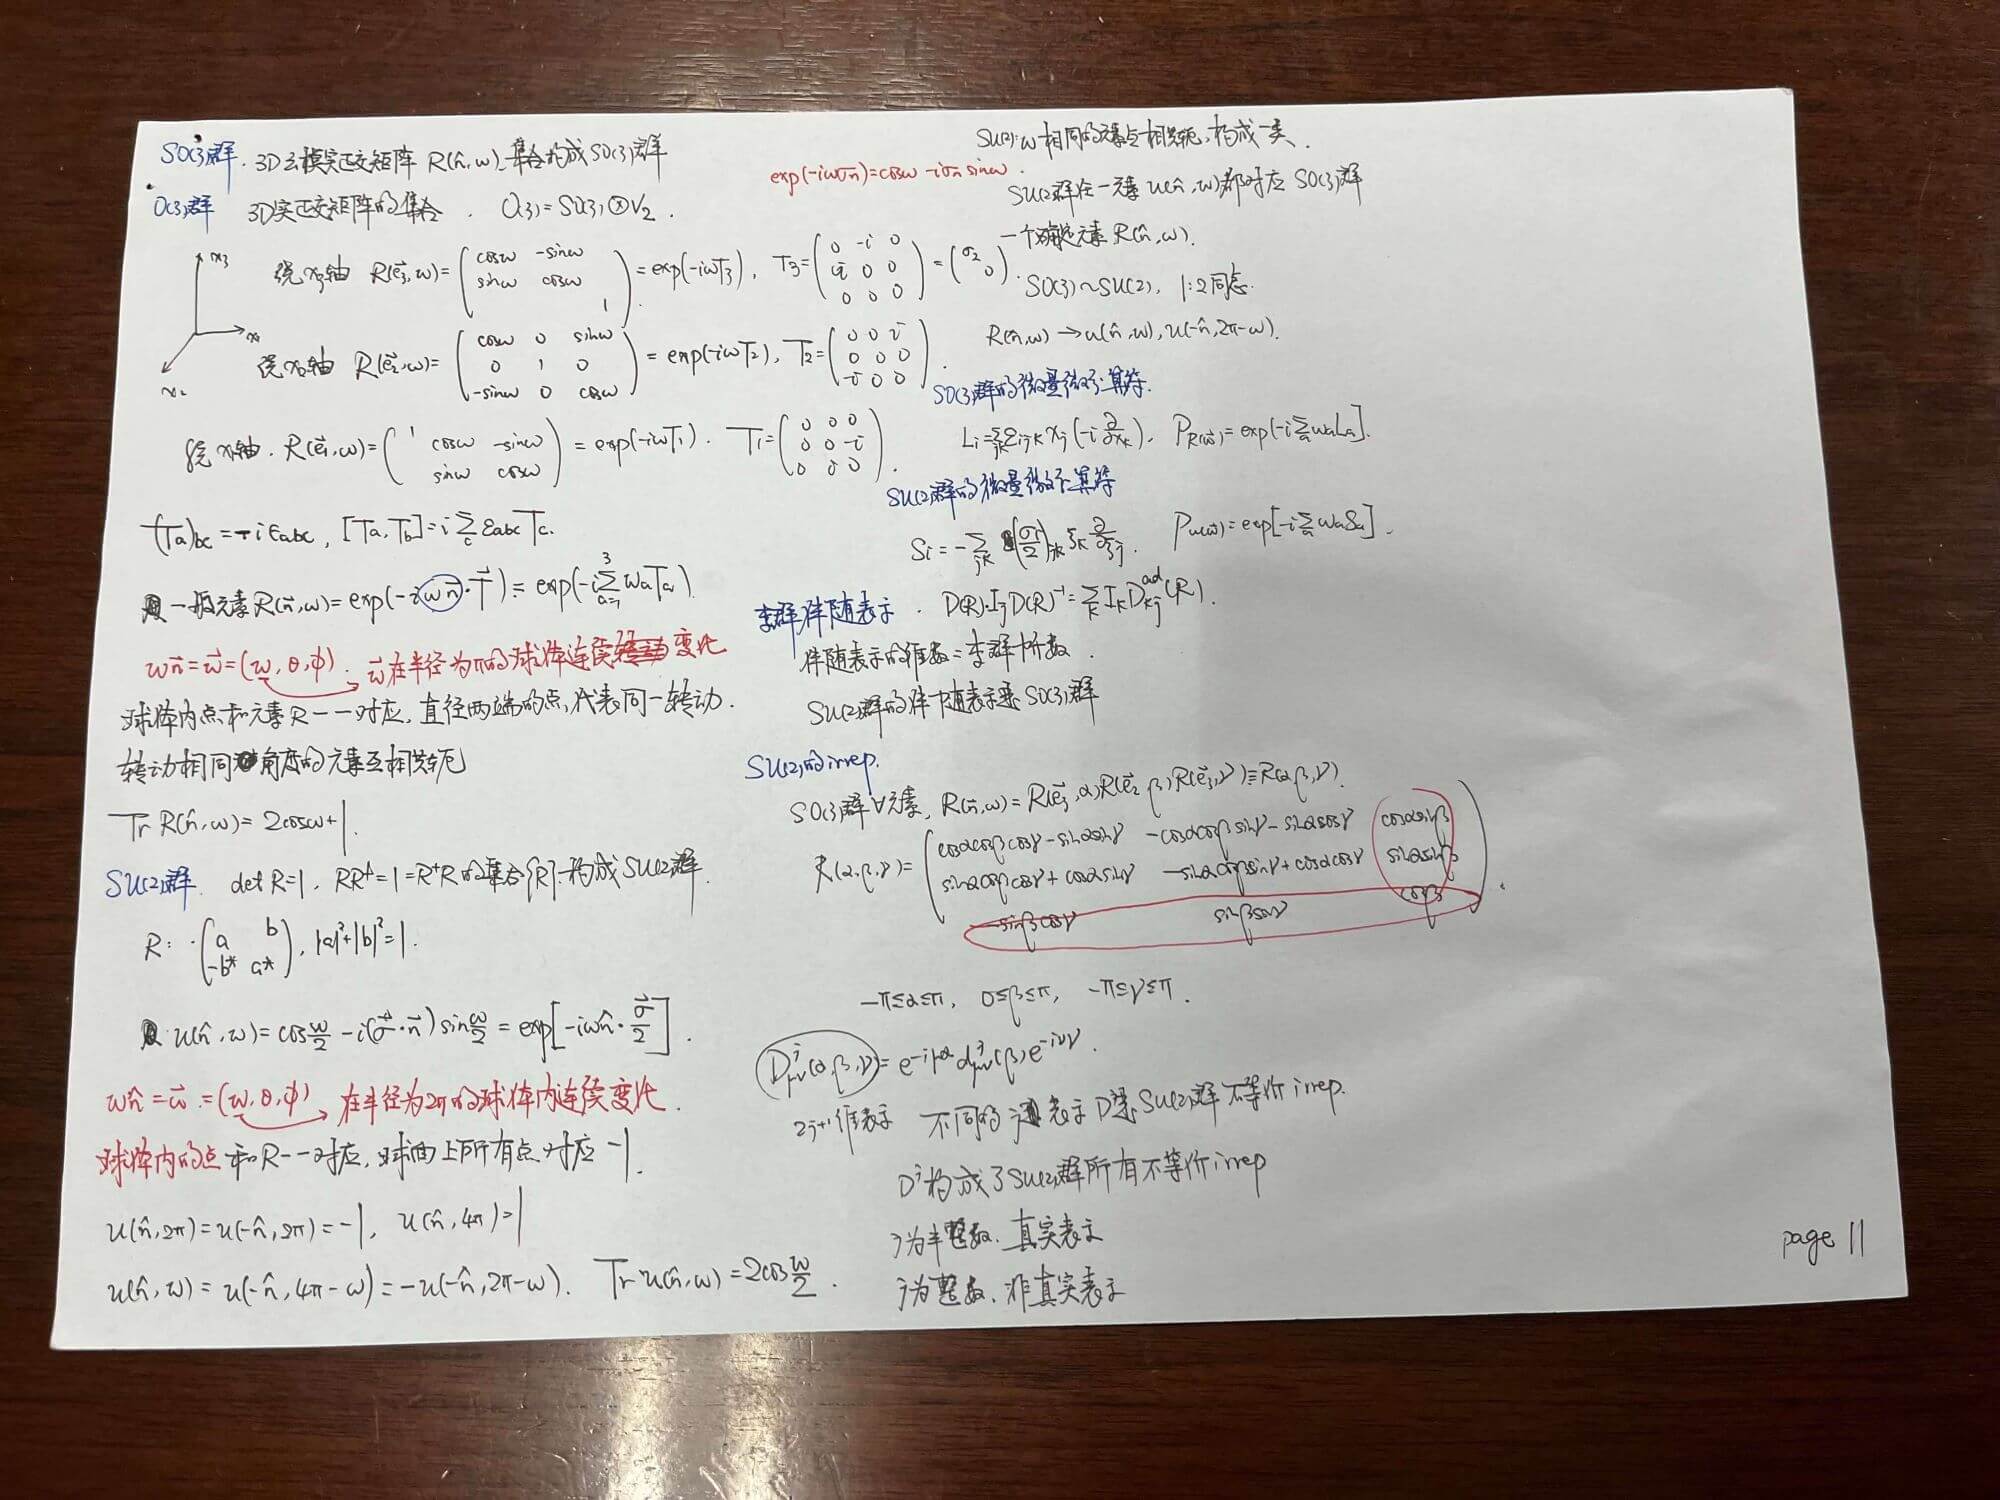 SO(3)群. 3D幺模实正交矩阵 R(n̂,ω) 集合构成SO(3)群
O(3)群 3D实正交矩阵的集合. O(3)=SO(3)⊗V₂.
x₃
x₁
x₂
绕x₃轴 R(e⃗₃,ω)=(cosω -sinω; sinω cosω; 1)=exp(-iωT₃), T₃=(0 -i 0; i 0 0; 0 0 0)=(σ₂ 0).
绕x₂轴 R(e⃗₂,ω)=(cosω 0 sinω; 0 1 0; -sinω 0 cosω)=exp(-iωT₂), T₂=(0 0 i; 0 0 0; -i 0 0).
绕x₁轴. R(e⃗₁,ω)=(1; cosω -sinω; sinω cosω)=exp(-iωT₁). T₁=(0 0 0; 0 0 -i; 0 i 0).
(Ta)bc=-iεabc, [Ta,Tb]=i∑c εabcTc.
一般元素R(n⃗,ω)=exp(-iωn⃗·T⃗)=exp(-i∑³a=1 ωaTa)
ωn⃗=ω⃗=(ω,θ,φ). ω⃗在半径为π的球体连续变化
球体内点和元素R一一对应,直径两端的点,代表同一转动.
转动相同角度的元素互相共轭
Tr R(n̂,ω)=2cosω+1.
SU(2)群. det R=1, RR⁺=1=R⁺R的集合{R}构成SU(2)群.
R: (a b; -b* a*), |a|²+|b|²=1.
u(n̂,ω)=cos ω/2 - i(σ⃗·n⃗) sin ω/2 = exp[-iωn̂·σ⃗/2].
ωn̂=ω⃗.=(ω,θ,φ) 在半径为2π的球体内连续变化.
球体内的点和R一一对应,球面上所有点对应-1.
u(n̂,2π)=u(-n̂,2π)=-1, u(n̂,4π)=1
u(n̂,ω)=u(-n̂,4π-ω)=-u(-n̂,2π-ω). Tr u(n̂,ω)=2cos ω/2.
SU(2):ω相同的元素互相共轭,构成一类.
exp(-iωσn)=cosω-iσn sinω.
SU(2)群任一元素u(n̂,ω)都对应SO(3)群
一个确定元素R(n̂,ω).
SO(3)~SU(2), 1:2同态.
R(n̂,ω)→u(n̂,ω),u(-n̂,2π-ω).
SO(3)群的微量微分算符.
Li=∑jk εijk xj(-i ∂/∂xk), PR(ω⃗)=exp[-i∑a ωaLa].
SU(2)群的微量微分算符
Si=-∑jk (σi/2)jk ξk ∂/∂ξj. Pu(ω⃗)=exp[-i∑a ωaSa].
李群伴随表示. D(R)·IjD(R)⁻¹=∑k IkDᵃᵈkj(R).
伴随表示的维数=李群阶数.
SU(2)群的伴随表示是SO(3)群
SU(2)的irrep.
SO(3)群∀元素, R(n⃗,ω)=R(e⃗₃,α)R(e⃗₂,β)R(e⃗₃,γ)≡R(α,β,γ).
R(α,β,γ)=(cosαcosβcosγ-sinαsinγ -cosαcosβsinγ-sinαcosγ cosαsinβ; sinαcosβcosγ+cosαsinγ -sinαcosβsinγ+cosαcosγ sinαsinβ; -sinβcosγ sinβsinγ cosβ).
-π≤α≤π, 0≤β≤π, -π≤γ≤π.
Dʲμν(α,β,γ)=e^{-iμα}dʲμν(β)e^{-iνγ}.
2j+1维表示 不同的j表示Dʲ是SU(2)群不等价irrep.
Dʲ构成了SU(2)群所有不等价irrep
j为半整数.真实表示
j为整数.非真实表示
page 11